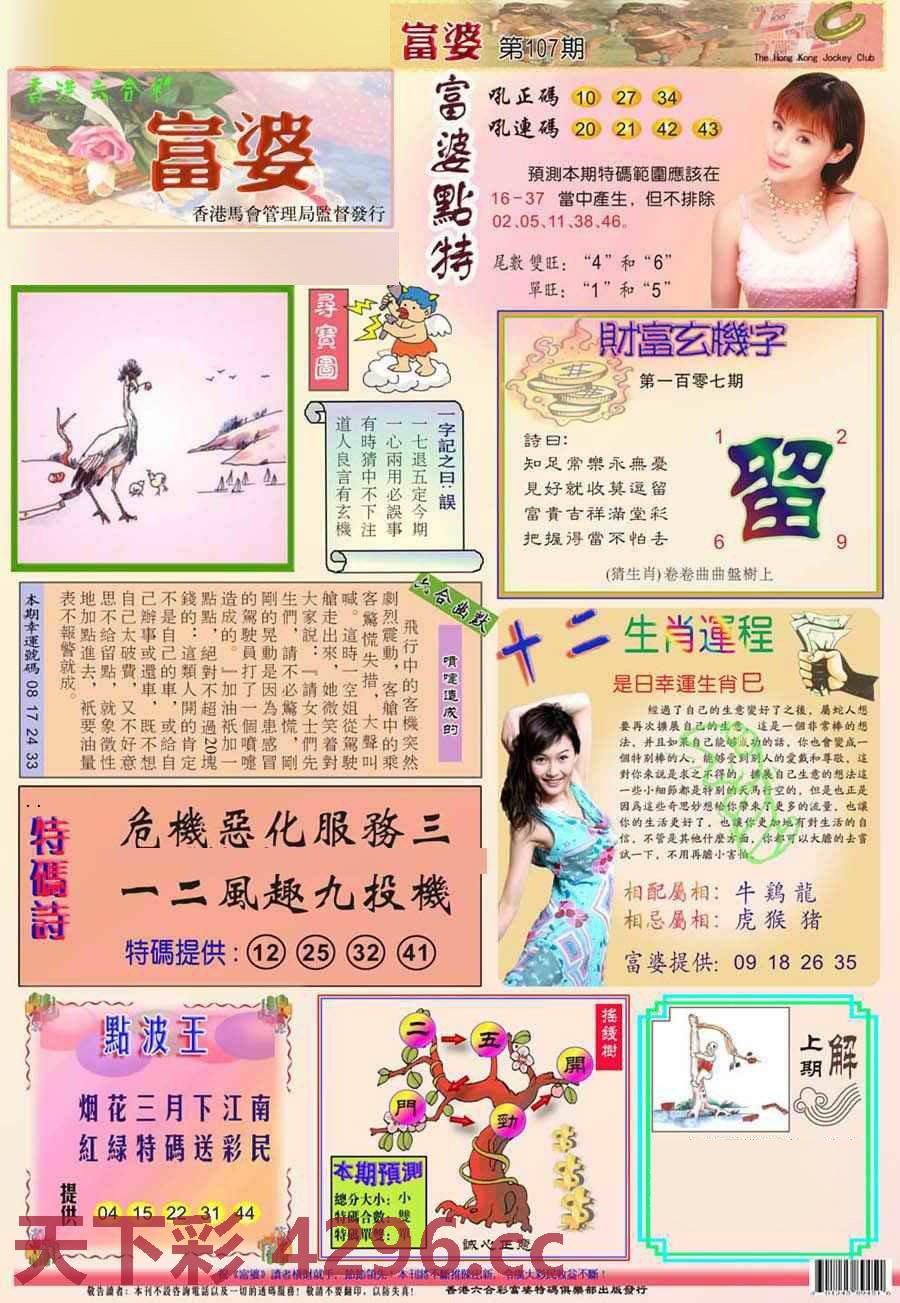 富婆 第107期
The Hong Kong Jockey Club
香港六合彩
富婆
香港馬會管理局監督發行
富婆點特
吼正碼 10 27 34
吼連碼 20 21 42 43
預測本期特碼範圍應該在
16-37 當中產生，但不排除
02、05、11、38、46。
尾數雙旺：“4”和“6”
單旺：“1”和“5”
尋寶圖
一字記之曰：誤
一七退五定今期
一心兩用必誤事
有時猜中不下注
道人良言有玄機
財富玄機字
第一百零七期
詩曰：
知足常樂永無憂
見好就收莫逗留
富貴吉祥滿堂彩
把握得當不怕丟
1 2
留
6 9
(猜生肖)卷卷曲曲盤樹上
六合幽默
噴嚏造成的
飛行中的客機突然
劇烈震動，客艙中的乘
客驚慌失措，大聲叫
喊。這時一空姐從駕駛
艙走出來，她微笑着對
大家說：『請女士們先
生們，請不必驚慌，剛
剛的晃動是因為患感冒
的駕駛員打了一個噴嚏
造成的。』加油衹加一
點點，絕對不超過20塊
錢的：這類人開的肯定
不是自己的車，或給自
己辦事或還車，既不想
自己太破費，又不好意
思不給留點，就象徵性
地加點進去，衹要油量
表不報警就成。
本期幸運號碼 08 17 24 33
十二生肖運程
是日幸運生肖巳
經過了自己的生意變好了之後，屬蛇人想
要再次擴展自己的生意，這是一個非常棒的想
法，并且如果自己能够成功的話，你也會變成一
個特別棒的人，能够受到別人的愛戴和尊敬，這
對你來說是求之不得的，擴展自己生意的想法這
一些小細節都是特別的天馬行空的，但是也正是
因爲這些奇思妙想給你帶來了更多的流量，也讓
你的生活更好了，也讓你更加地有對生活的自
信，不管是其他什麽方面，你都可以大膽的去嘗
試一下，不用再膽小害怕。
相配屬相：牛 鷄 龍
相忌屬相：虎 猴 猪
富婆提供：09 18 26 35
特碼詩
危機惡化服務三
一二風趣九投機
特碼提供：12 25 32 41
點波王
烟花三月下江南
紅緑特碼送彩民
提供 04 15 22 31 44
搖錢樹
二 五
門 勁 開
本期預測
總分大小：小
特碼合數：雙
特碼單雙：單
誠心正意
上期解
天下彩 4296.cc
祝《富婆》讀者橫財就手，節節領先！本刊將不斷推陳出新，令廣大彩民收益不斷！
敬告讀者：本刊不設咨詢電話以及一切的透碼服務！敬請不要翻印，以防失真！ 香港六合彩富婆特碼俱樂部出版發行